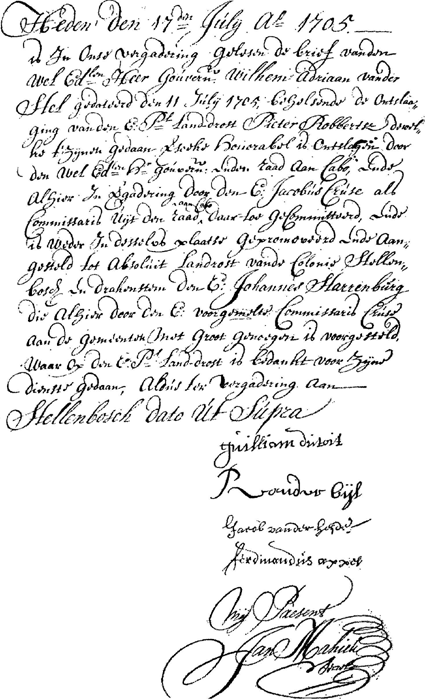 Heden den 17den July Ao 1705
is In Onse vergadering gelesen de brief vanden
Wel Edlen Heer Gouvernr Wilhem Adriaan vander
Stel gedateerd den 11 July 1705, behelsende de Ontslaa-
ging vanden E. Pr Landdrost Pieter Robbertsz
gedaan Honorabel is Ontslagen door
den Wel Edlen Hr Gouvernr Enden Raad Aan Cabo, Ende
Alhier In Vgadering Door den E. Jacobus Cruse als
Commissaris Uijt den Raad aan Cabo Daar toe GeCommitteerd, Ende
is Weder In desselvs plaatse Gepromoveerd Ende Aan-
gesteld tot Absoluit Landrost vande Colonie Stellen-
bosch En drakenstein den Er. Johannes Starrenburg
die Alhier Door den E. voorgemelte Commissaris Cruse
Aan de Gemeenten Met Groot Genoegen is voorgesteld,
Waar Op den E. Pr Landdrost is bedankt voor Zijne
dienste Gedaan, Aldus ter vergadering Aan
Stellenbosch dato Ut Supra
guilliam dutoit
P vander bijl
Jacob vander Heijden
ferdinandus appel
Mij Present
Jan Mahieu